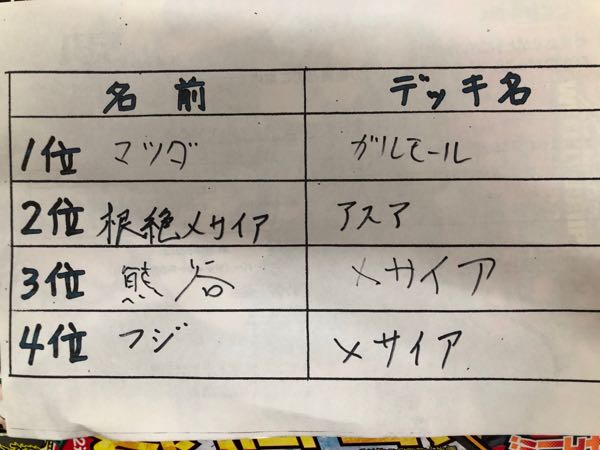 名前 デッキ名
1位 マツダ ガルモール
2位 根絶メサイア アスア
3位 熊谷 メサイア
4位 フジ メサイア